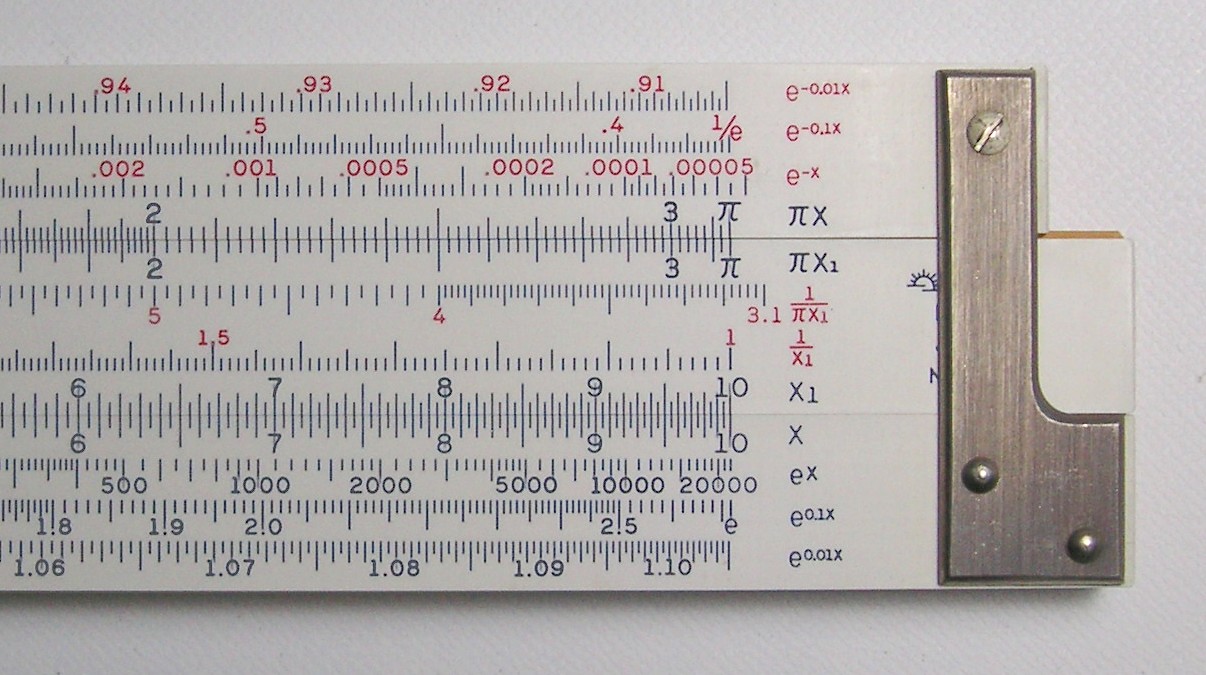 .94 .93 .92 .91 e-0.01X
.5 .4 1/e e-0.1X
.002 .001 .0005 .0002 .0001 .00005 e-X
2 3 π πX
2 3 π πX1
5 4 3.1 1/πX1
1.5 1 1/X1
6 7 8 9 10 X1
6 7 8 9 10 X
500 1000 2000 5000 10000 20000 eX
1.8 1.9 2.0 2.5 e e0.1X
1.06 1.07 1.08 1.09 1.10 e0.01X